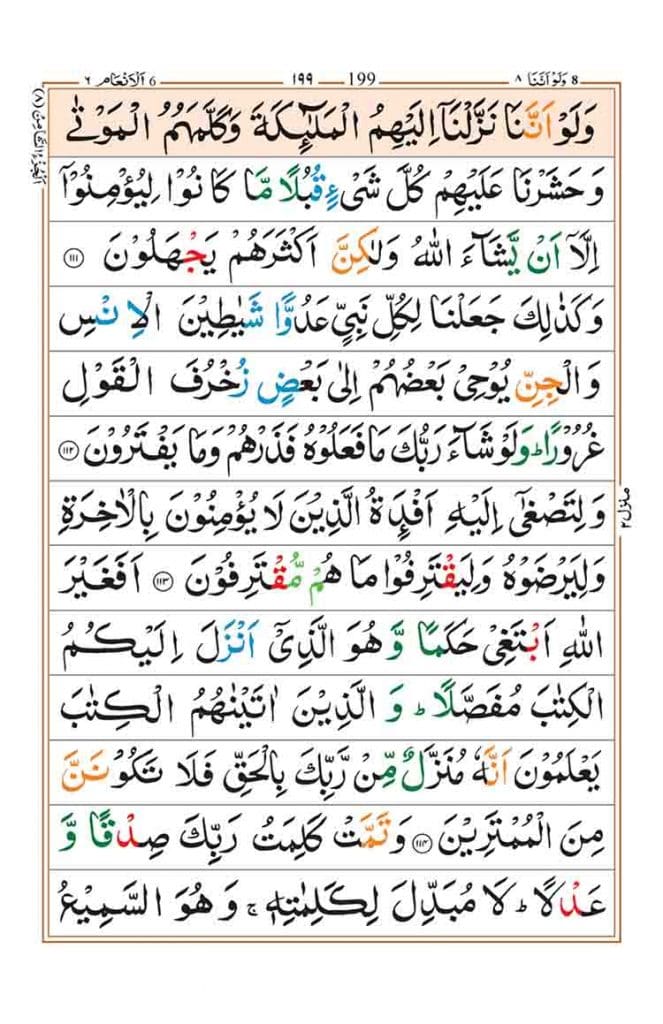 8 وَلَوْ اَنَّنَا ٨
199 ١٩٩
6 اَلْاَنْعَام ٦
اَلْجُزْءُ الثَّامِنُ (٨)
وَلَوْ اَنَّنَا نَزَّلْنَاۤ اِلَيْهِمُ الْمَلٰٓئِكَةَ وَكَلَّمَهُمُ الْمَوْتٰى
وَحَشَرْنَا عَلَيْهِمْ كُلَّ شَىْءٍ قُبُلًا مَّا كَانُوْا لِيُؤْمِنُوْۤا
اِلَّاۤ اَنْ يَّشَآءَ اللّٰهُ وَلٰكِنَّ اَكْثَرَهُمْ يَجْهَلُوْنَ ﴿١١١﴾
وَكَذٰلِكَ جَعَلْنَا لِكُلِّ نَبِىٍّ عَدُوًّا شَيٰطِيْنَ الْاِنْسِ
وَالْجِنِّ يُوْحِىْ بَعْضُهُمْ اِلٰى بَعْضٍ زُخْرُفَ الْقَوْلِ
غُرُوْرًا ؕ وَلَوْ شَآءَ رَبُّكَ مَا فَعَلُوْهُ فَذَرْهُمْ وَمَا يَفْتَرُوْنَ ﴿١١٢﴾
وَلِتَصْغٰۤى اِلَيْهِ اَفْئِدَةُ الَّذِيْنَ لَا يُؤْمِنُوْنَ بِالْاٰخِرَةِ
وَلِيَرْضَوْهُ وَلِيَقْتَرِفُوْا مَا هُمْ مُّقْتَرِفُوْنَ ﴿١١٣﴾ اَفَغَيْرَ
اللّٰهِ اَبْتَغِىْ حَكَمًا وَّهُوَ الَّذِىْۤ اَنْزَلَ اِلَيْكُمُ
الْكِتٰبَ مُفَصَّلًا ؕ وَالَّذِيْنَ اٰتَيْنٰهُمُ الْكِتٰبَ
يَعْلَمُوْنَ اَنَّهٗ مُنَزَّلٌ مِّنْ رَّبِّكَ بِالْحَقِّ فَلَا تَكُوْنَنَّ
مِنَ الْمُمْتَرِيْنَ ﴿١١٤﴾ وَتَمَّتْ كَلِمَتُ رَبِّكَ صِدْقًا وَّ
عَدْلًا ؕ لَا مُبَدِّلَ لِكَلِمٰتِهٖ ۚ وَهُوَ السَّمِيْعُ
منزل ٢